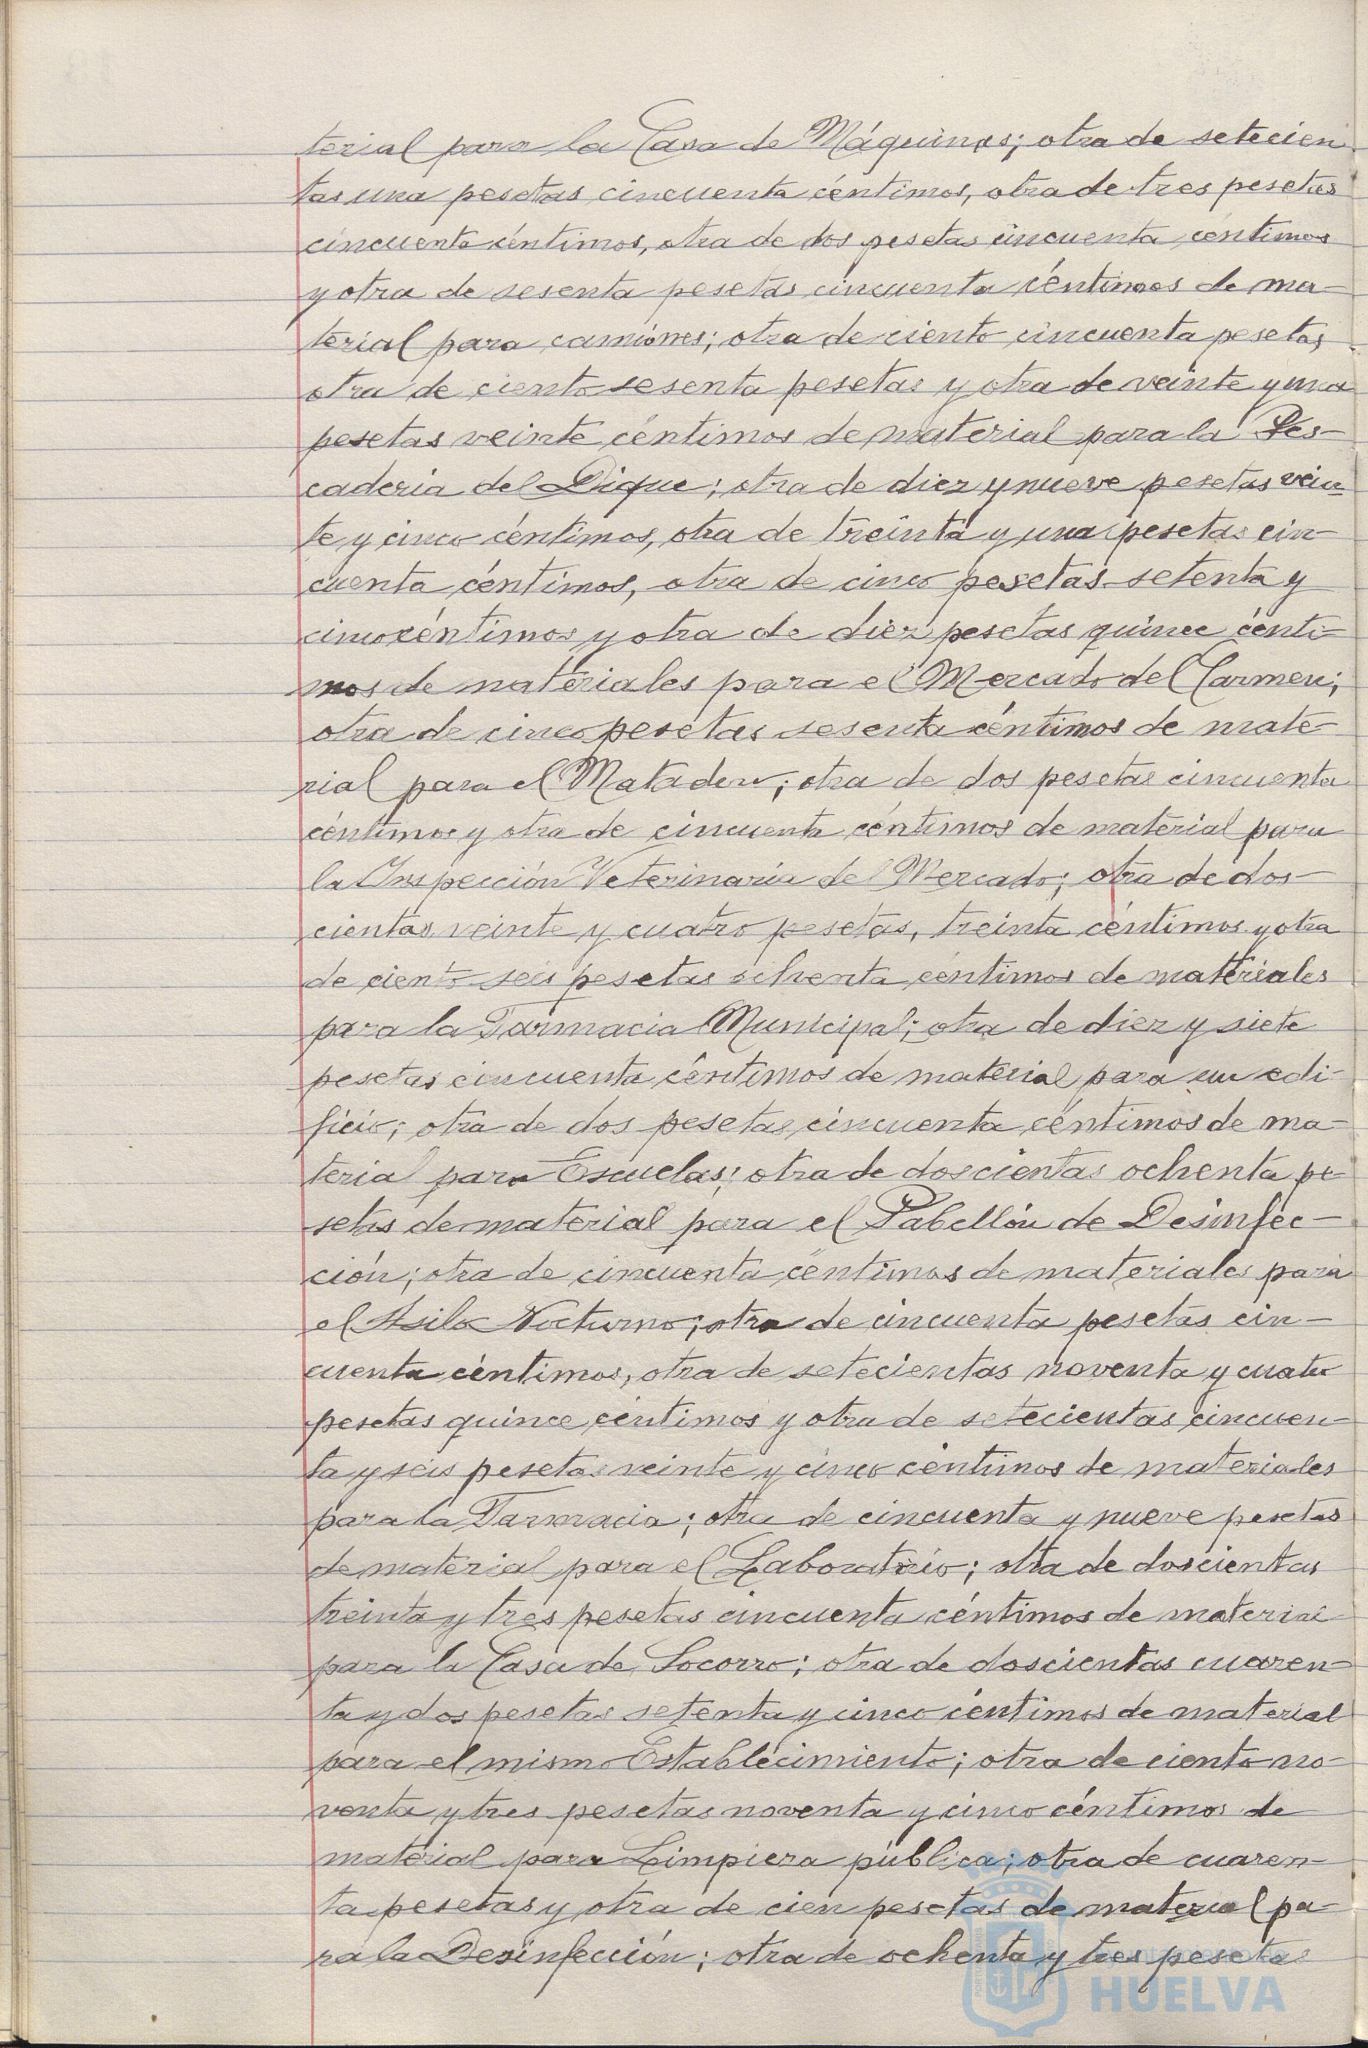 terial para la Casa de Máquinas; otra de setecien
tas una pesetas cincuenta céntimos, otra de tres pesetas
cincuenta céntimos, otra de dos pesetas cincuenta céntimos
y otra de sesenta pesetas cincuenta céntimos de ma-
terial para camiones; otra de ciento cincuenta pesetas,
otra de ciento sesenta pesetas y otra de veinte y una
pesetas veinte céntimos de material para la Pes-
caderia del Dique; otra de diez y nueve pesetas vein-
te y cinco céntimos, otra de treinta y una pesetas cin-
cuenta céntimos, otra de cinco pesetas setenta y
cinco céntimos y otra de diez pesetas quince cénti-
mos de materiales para el Mercado del Carmen;
otra de cinco pesetas sesenta céntimos de mate-
rial para el Matadero; otra de dos pesetas cincuenta
céntimos y otra de cincuenta céntimos de material para
la Inspección Veterinaria del Mercado; otra de dos-
cientas veinte y cuatro pesetas, treinta céntimos y otra
de ciento seis pesetas ochenta céntimos de materiales
para la Farmacia Municipal; otra de diez y siete
pesetas cincuenta céntimos de material para un edi-
ficio; otra de dos pesetas cincuenta céntimos de ma-
terial para Escuelas; otra de doscientas ochenta pe-
setas de material para el Pabellón de Desinfec-
ción; otra de cincuenta céntimos de materiales para
el Asilo Nocturno; otra de cincuenta pesetas cin-
cuenta céntimos, otra de setecientas noventa y cuatro
pesetas quince céntimos y otra de setecientas cincuen-
ta y seis pesetas veinte y cinco céntimos de materiales
para la Farmacia; otra de cincuenta y nueve pesetas
de material para el Laboratorio; otra de doscientas
treinta y tres pesetas cincuenta céntimos de material
para la Casa de Socorro; otra de doscientas cuaren-
ta y dos pesetas setenta y cinco céntimos de material
para el mismo Establecimiento; otra de ciento no-
venta y tres pesetas noventa y cinco céntimos de
material para Limpieza pública; otra de cuaren-
ta pesetas y otra de cien pesetas de material pa-
ra la Desinfección; otra de ochenta y tres pesetas
HUELVA